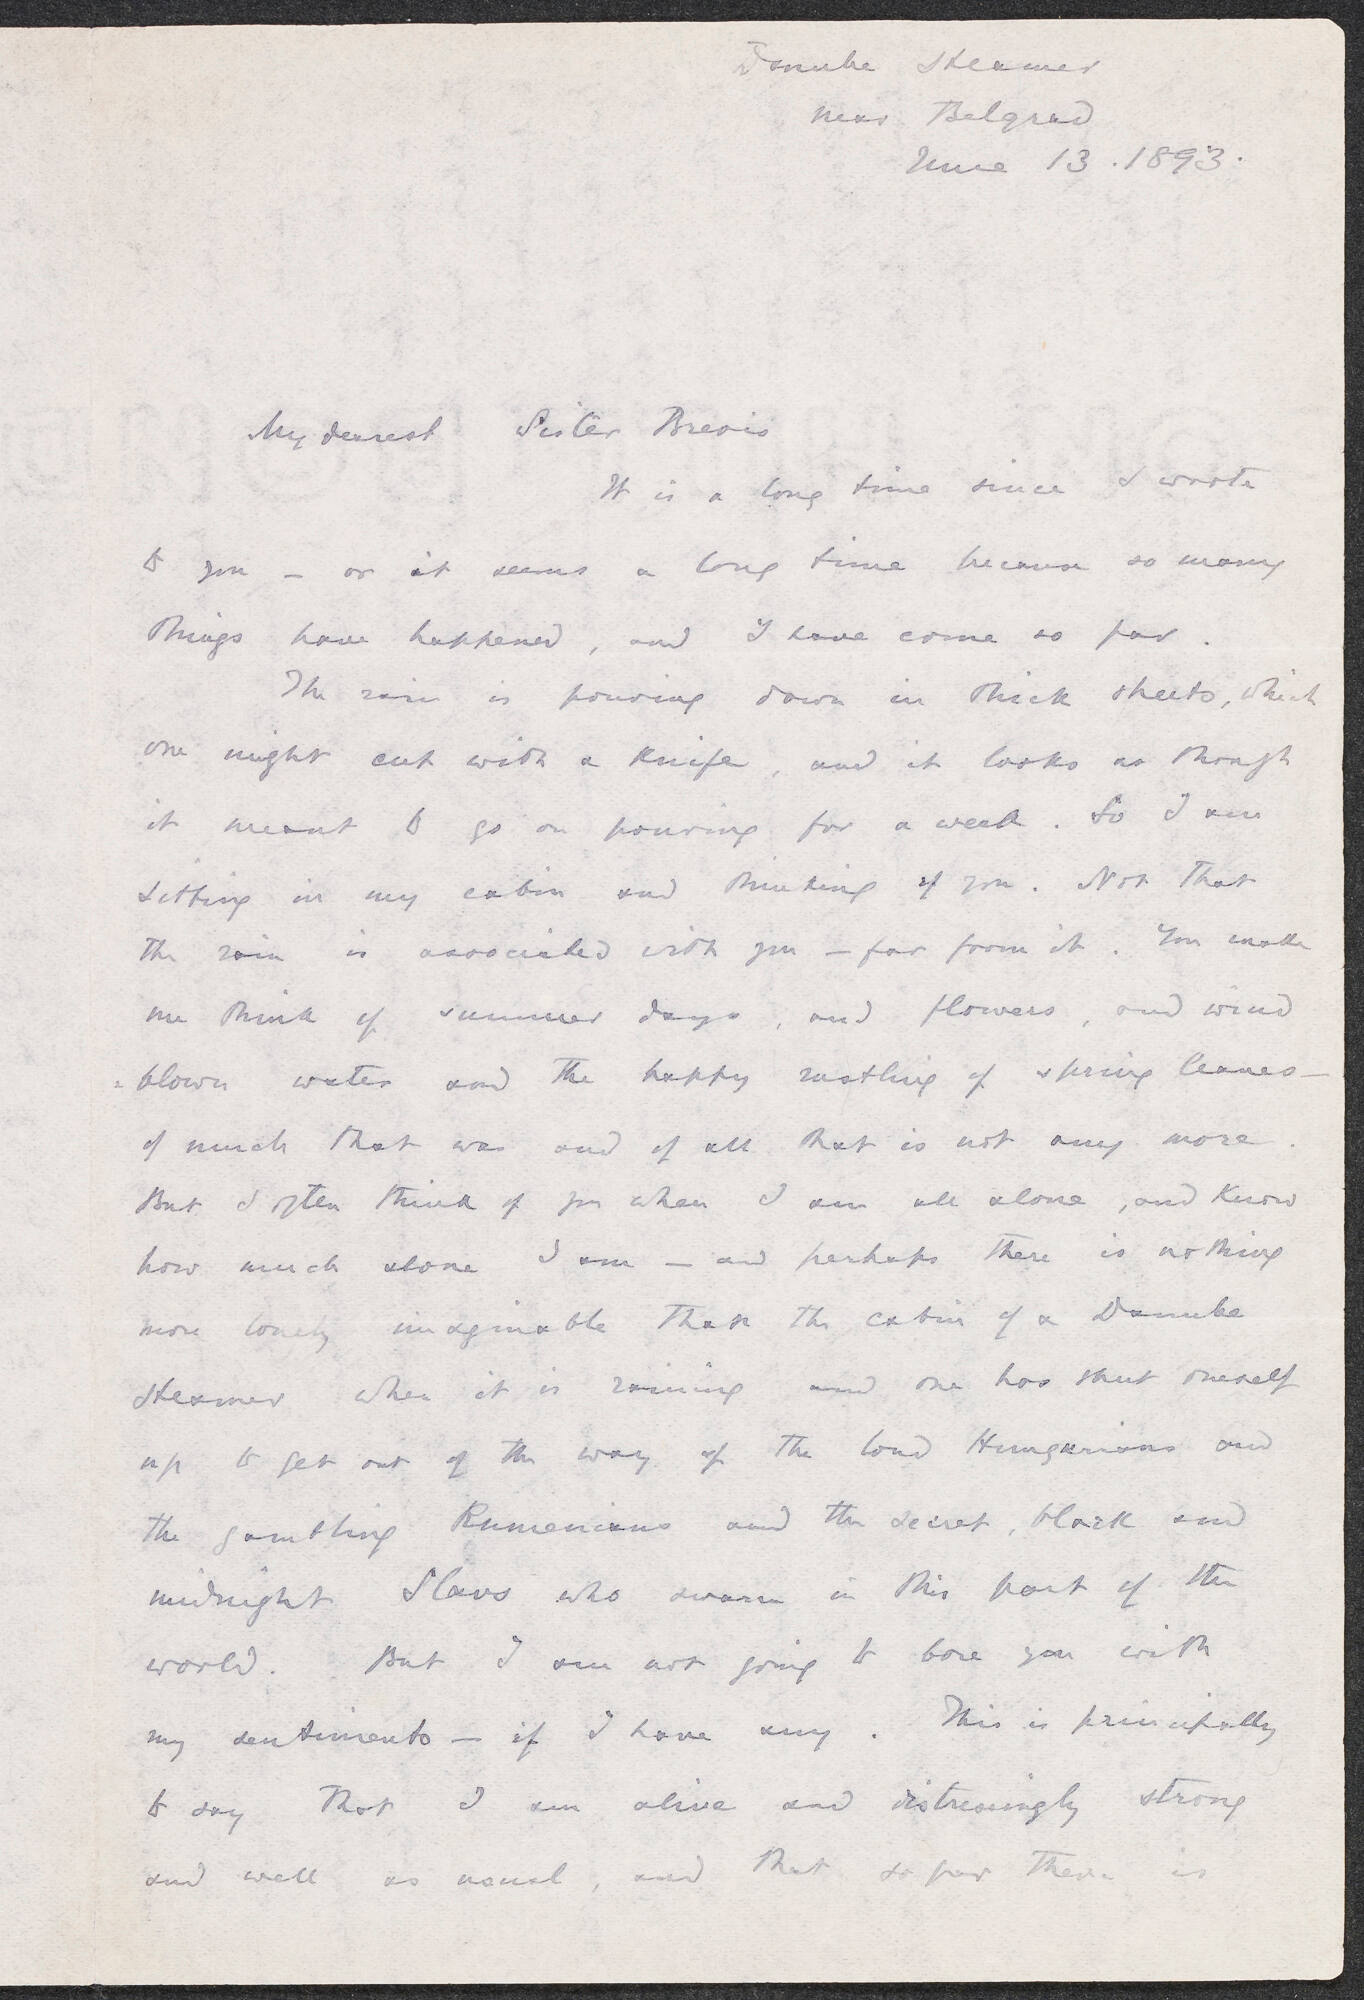 Danube Steamer
near Belgrad
June 13. 1893.
My dearest Sister Brevis
It is a long time since I wrote
to you – or it seems a long time because so many
things have happened, and I have come so far.
The rain is pouring down in thick sheets, which
one might cut with a knife, and it looks as though
it meant to go on pouring for a week. So I am
sitting in my cabin and thinking of you. Not that
the rain is associated with you – far from it. You make
me think of summer days, and flowers, and wind
=blown water and the happy rustling of spring leaves –
of much that was and of all that is not any more.
But I often think of you when I am all alone, and know
how much alone I am – and perhaps there is nothing
more lonely imaginable than the cabin of a Danube
steamer when it is raining and one has shut oneself
up to get out of the way of the loud Hungarians and
the gambling Rumenians and the secret, black and
midnight Slavs who swarm in this part of the
world. But I am not going to bore you with
my sentiments – if I have any. This is principally
to say that I am alive and distressingly strong
and well as usual, and that so far there is